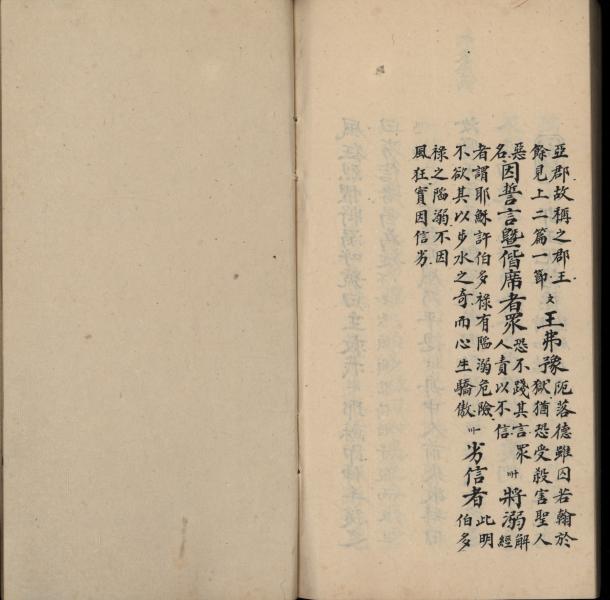 亞郡故稱之郡王
餘見上二篇一節
九
王弗豫
阨落德雖囚若翰於
獄猶恐受殺害聖人
惡
名
因誓言暨偕席者眾
恐不踐其言眾
人責以不信
卅
將溺
解
經
者謂耶穌許伯多祿有陷溺危險
不欲其以步水之奇而心生驕傲
劣信者
此明
伯多
祿之陷溺不因
風狂實因信劣